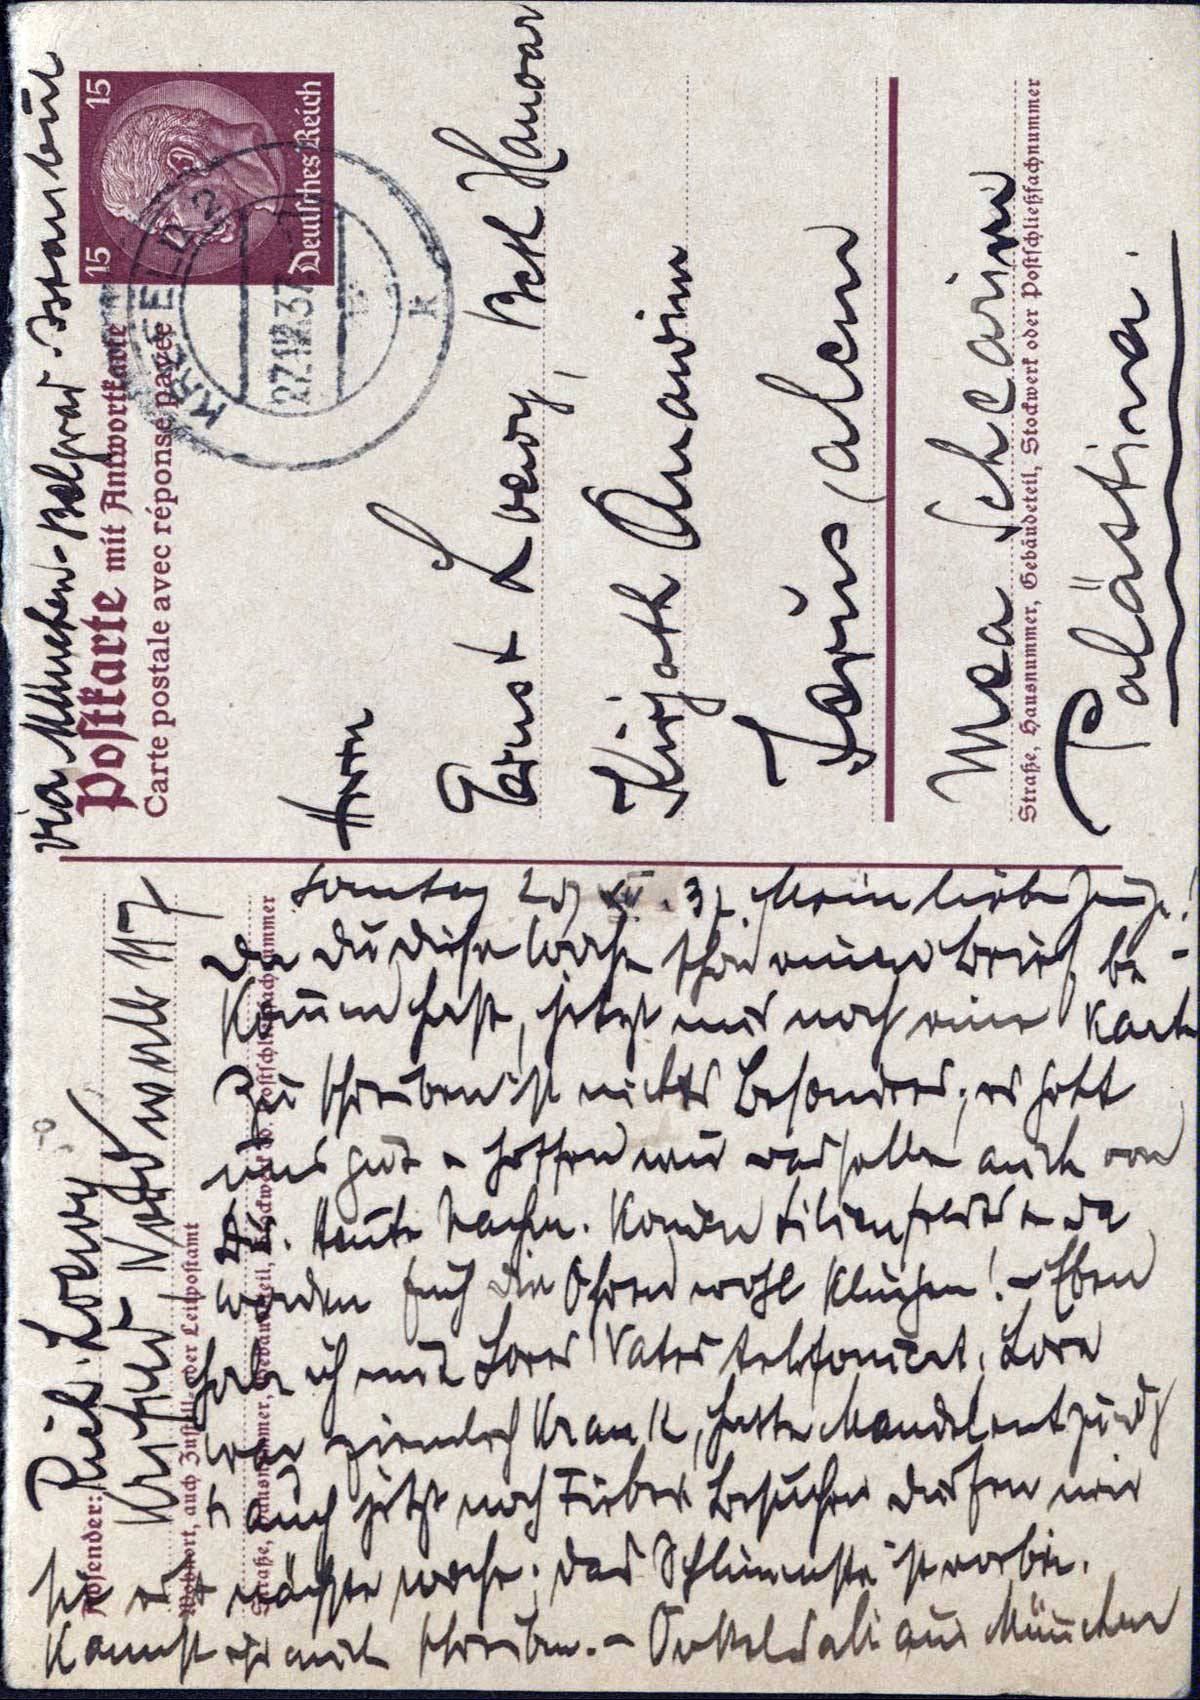 via München-Belgrad-Istanbul
Postkarte mit Antwortkarte
Carte postale avec réponse payée
15 15
Deutsches Reich
KREFELD 2
27.12.37
k
Herrn
Ernst Loewy, Beth Hanoar
Kirjath Anavim
Jerusalem
Mea Schearim
Straße, Hausnummer, Gebäudeteil, Stockwerk oder Postschließfachnummer
Palästina.
Absender: Rich. Loewy
Krefeld Nordwall 117
Wohnort, auch Zustell- oder Leitpostamt
Straße, Hausnummer, Gebäudeteil, Stockwerk od. Postschließfachnummer
Sonntag XII. 37. Mein lieber Junge!
Da Du diese Woche schon einen Brief be-
kommen hast, jetzt nur noch eine Karte
zu schreiben ist nichts Besonderes; es geht
uns gut u. hoffen wir dasselbe auch von
Dir. Heute Nachm. kommen u. da
werden Euch die Ohren wohl klingen! – Eben
habe ich mit Lores Vater telefoniert. Lore
war ziemlich krank, hatte Mandelentzündg
u. auch jetzt noch Fieber. Besuchen dürfen wir
sie erst nächste Woche; das Schlimmste ist vorbei.
Kannst ihr auch schreiben. – Onkel aus München